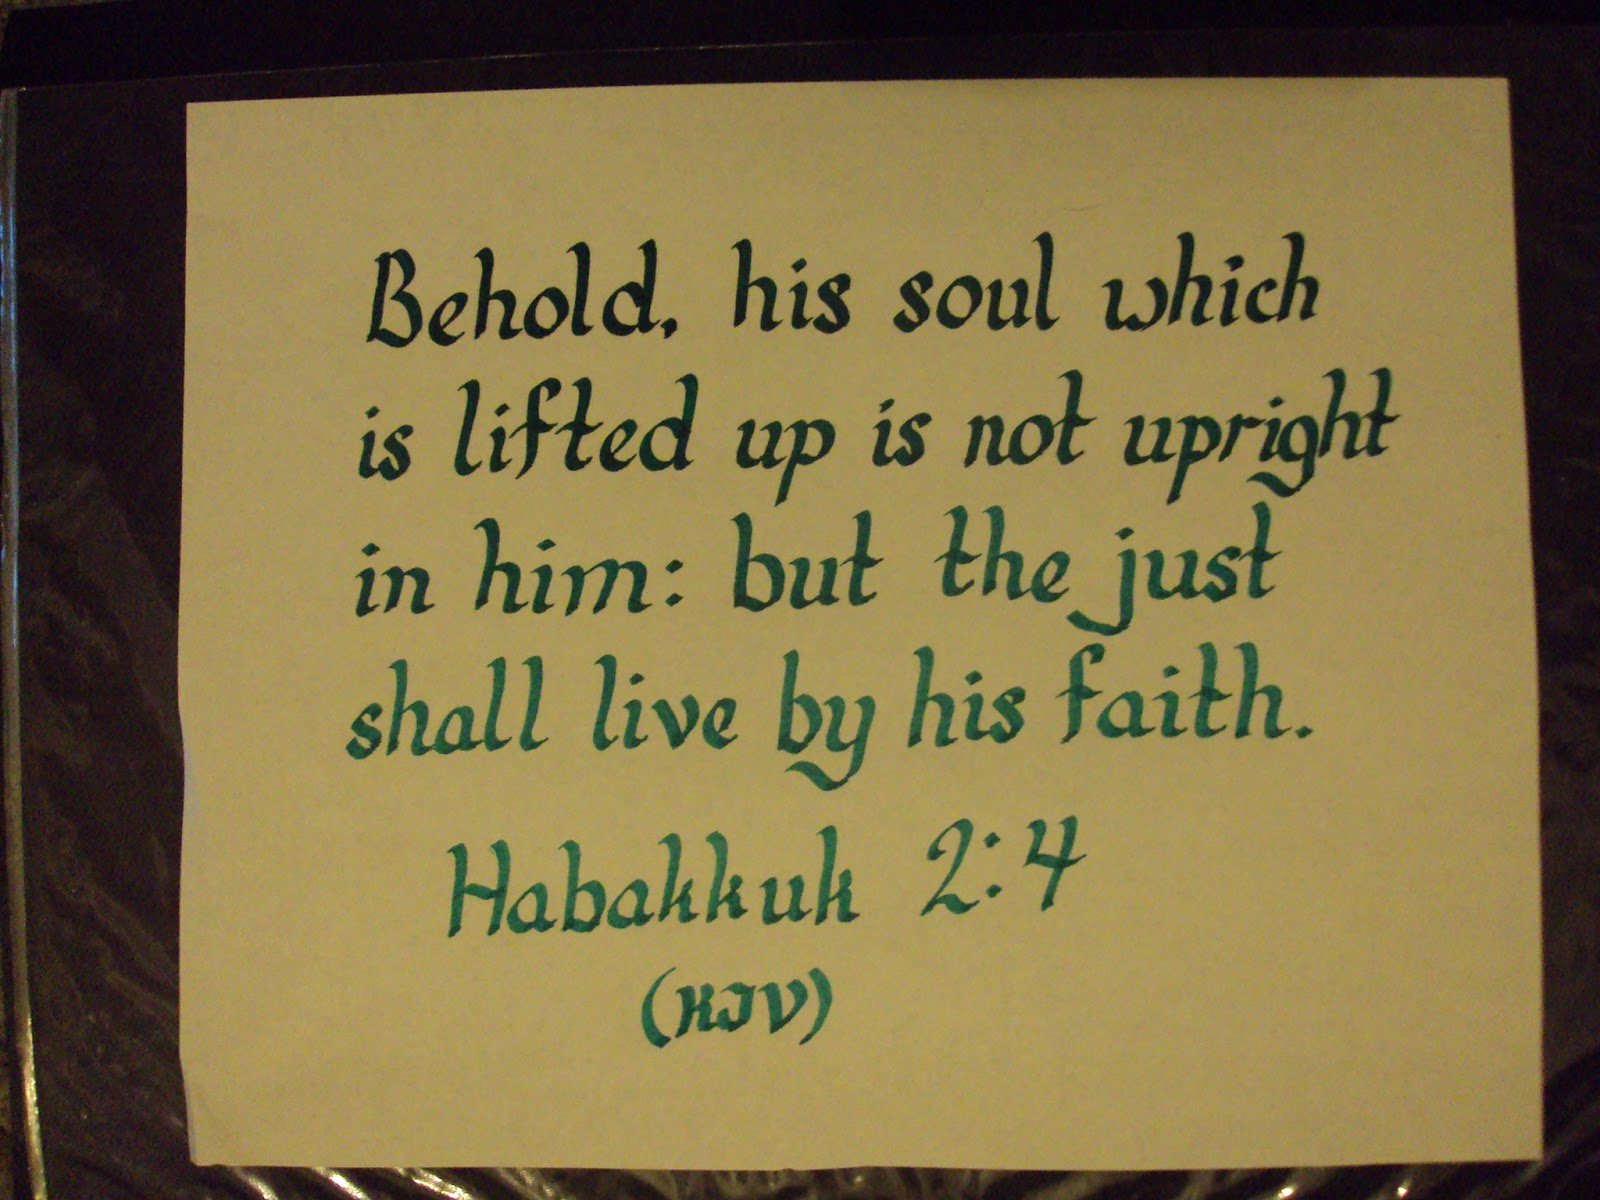 Behold, his soul which
is lifted up is not upright
in him: but the just
shall live by his faith.
Habakkuk 2:4
(KJV)